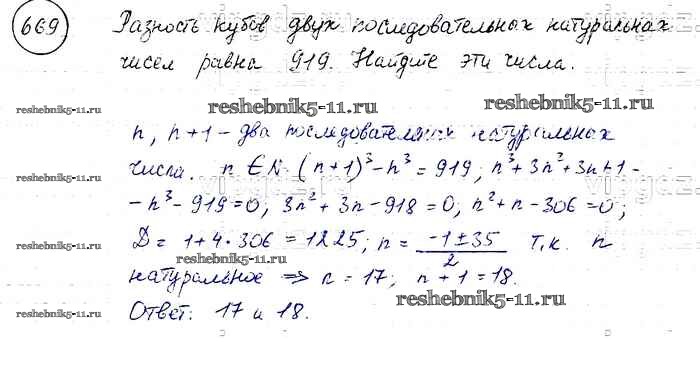 669 Разность кубов двух последовательных натуральных
чисел равна 919. Найдите эти числа.
reshebnik5-11.ru reshebnik5-11.ru reshebnik5-11.ru
n, n+1 - два последовательных натуральных
числа. n ∈ N (n+1)³ - n³ = 919; n³+3n²+3n+1-
reshebnik5-11.ru
-n³-919=0; 3n²+3n-918=0; n²+n-306=0;
reshebnik5-11.ru
D=1+4·306=1225; n = (-1±35)/2 т.к. n
reshebnik5-11.ru reshebnik5-11.ru
натуральное ⇒ n=17; n+1=18.
reshebnik5-11.ru
Ответ: 17 и 18.
reshebnik5-11.ru